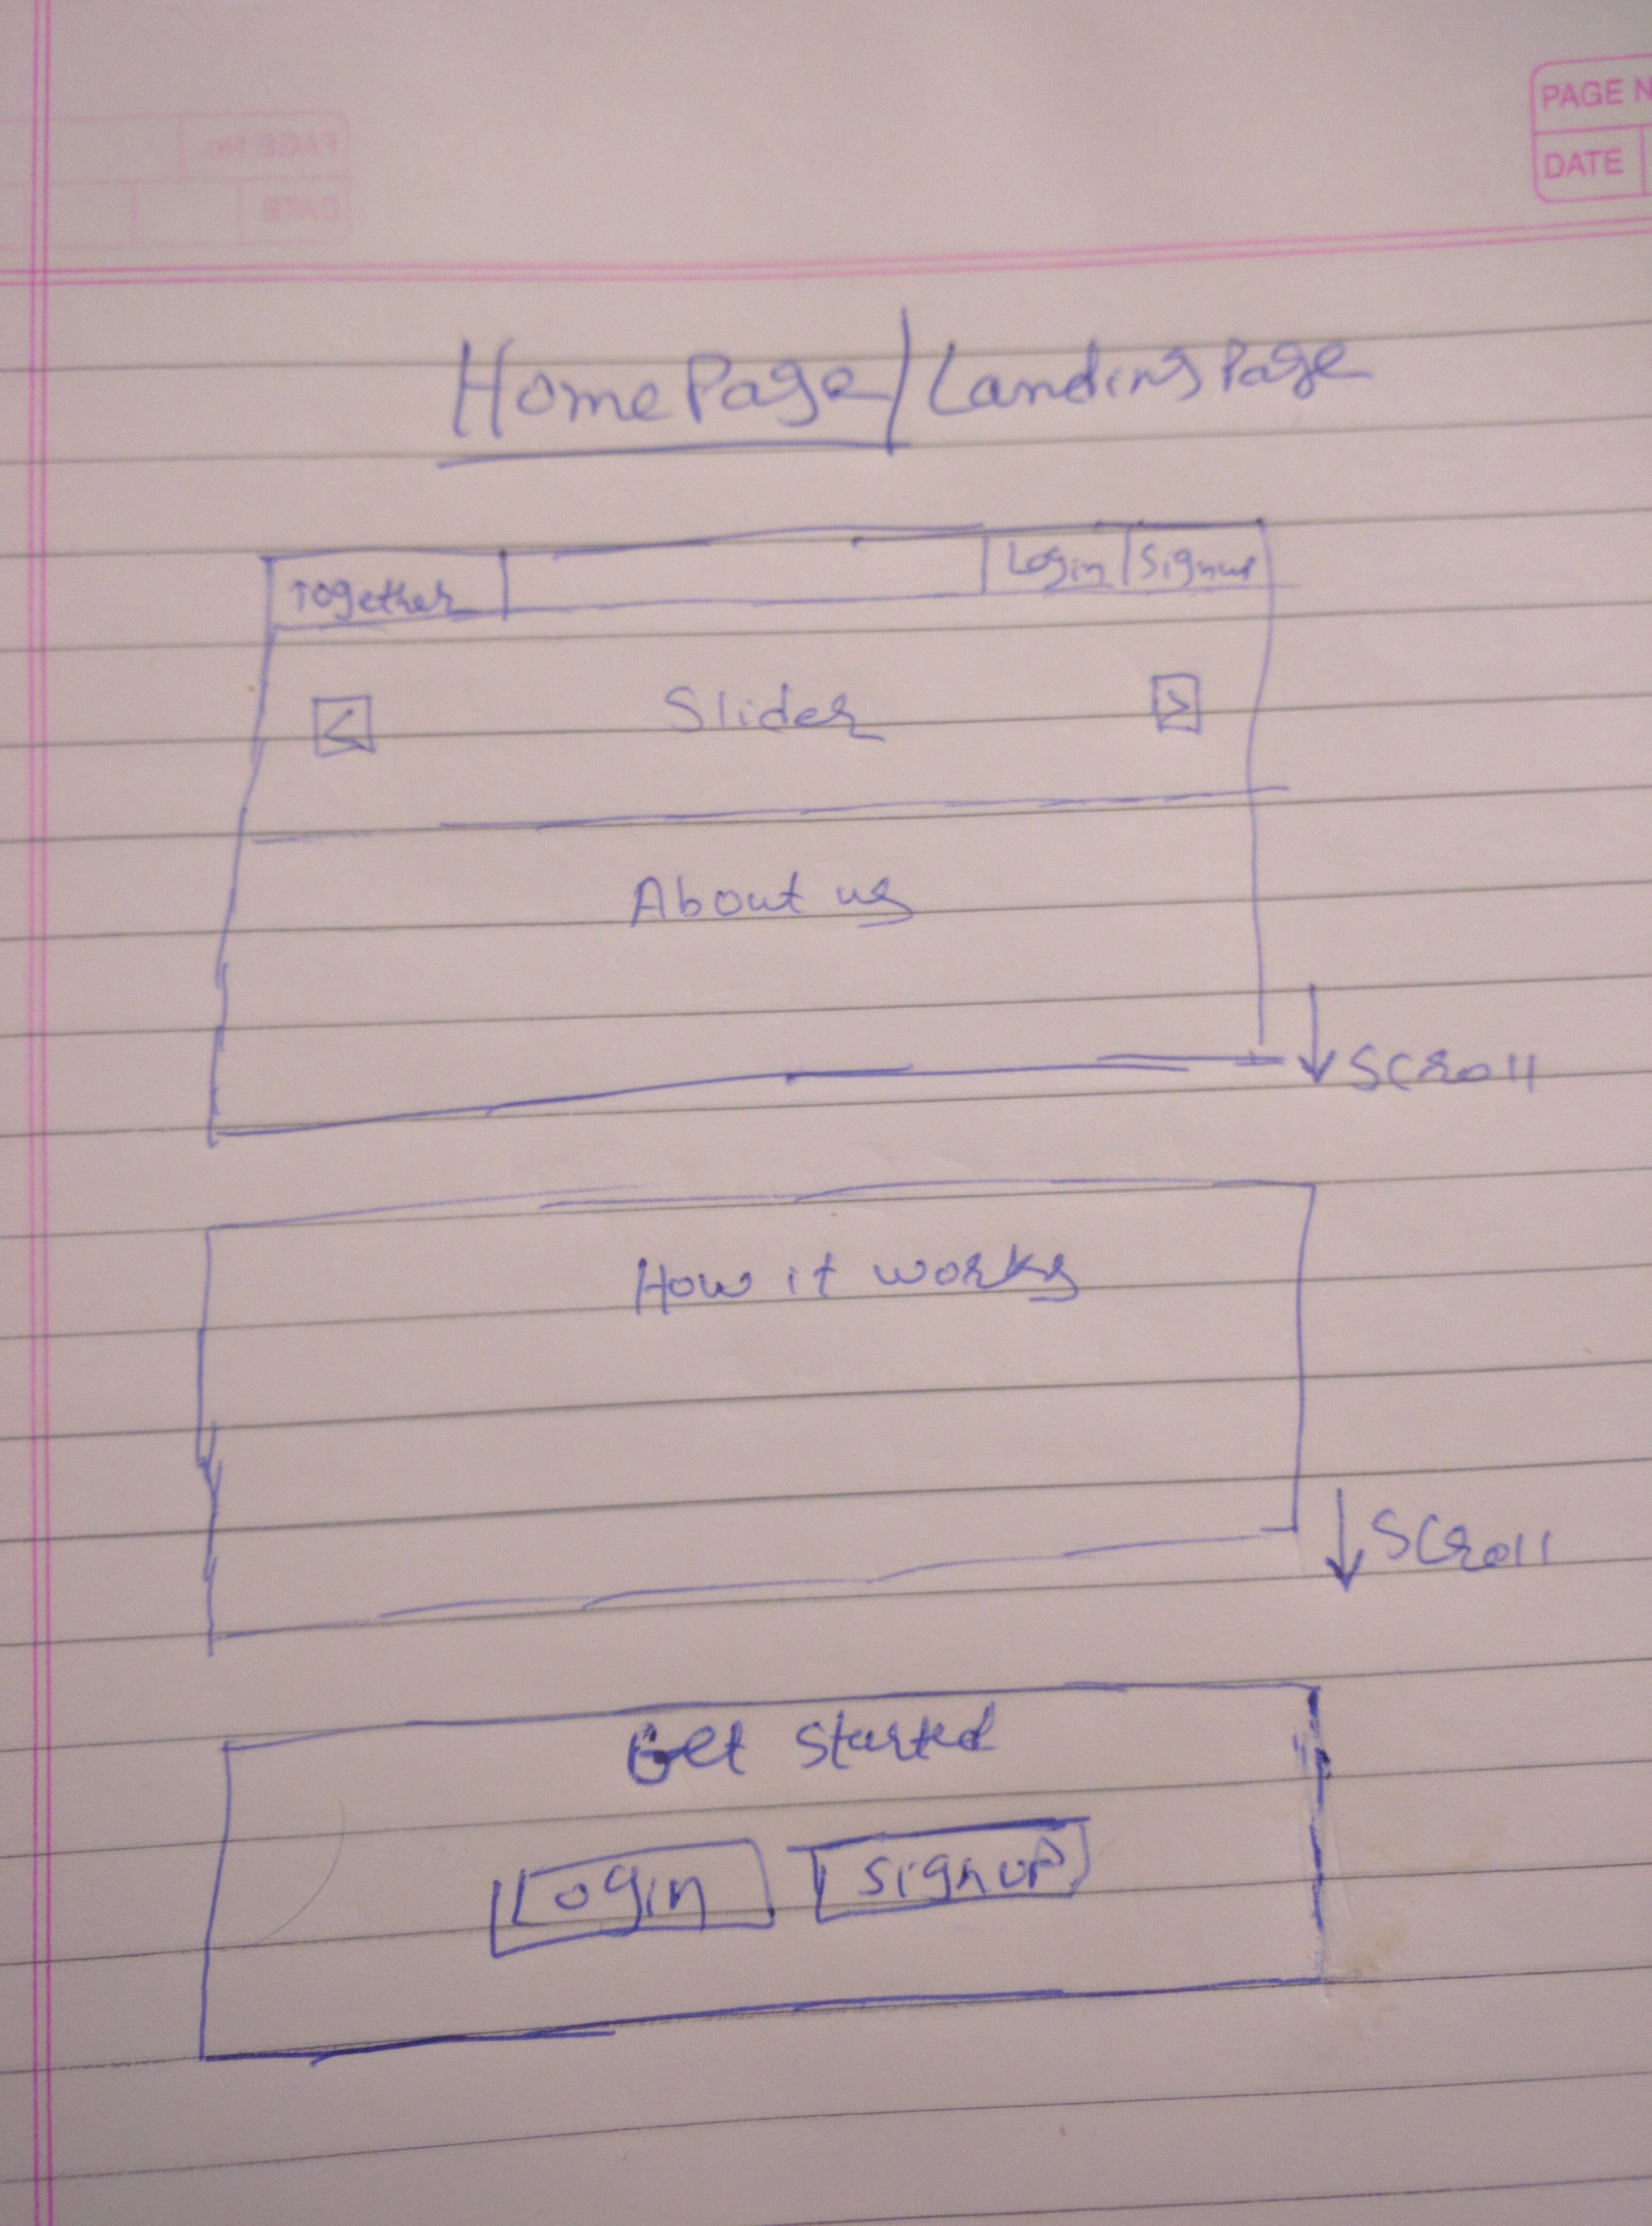 PAGE N
DATE
PAGE No.
DATE
Home Page/Landing Page
Together Login Signup
< Slider >
About us
Scroll
How it works
Scroll
Get Started
Login Signup